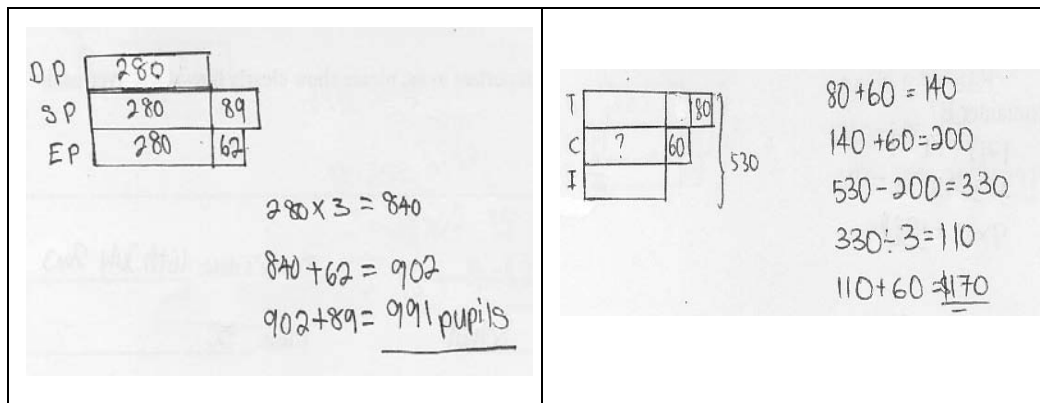 DP 280
SP 280 89
EP 280 62
280 × 3 = 840
840 + 62 = 902
902 + 89 = 991 pupils
T 80
C ? 60
I
530
80 + 60 = 140
140 + 60 = 200
530 - 200 = 330
330 ÷ 3 = 110
110 + 60 = $170